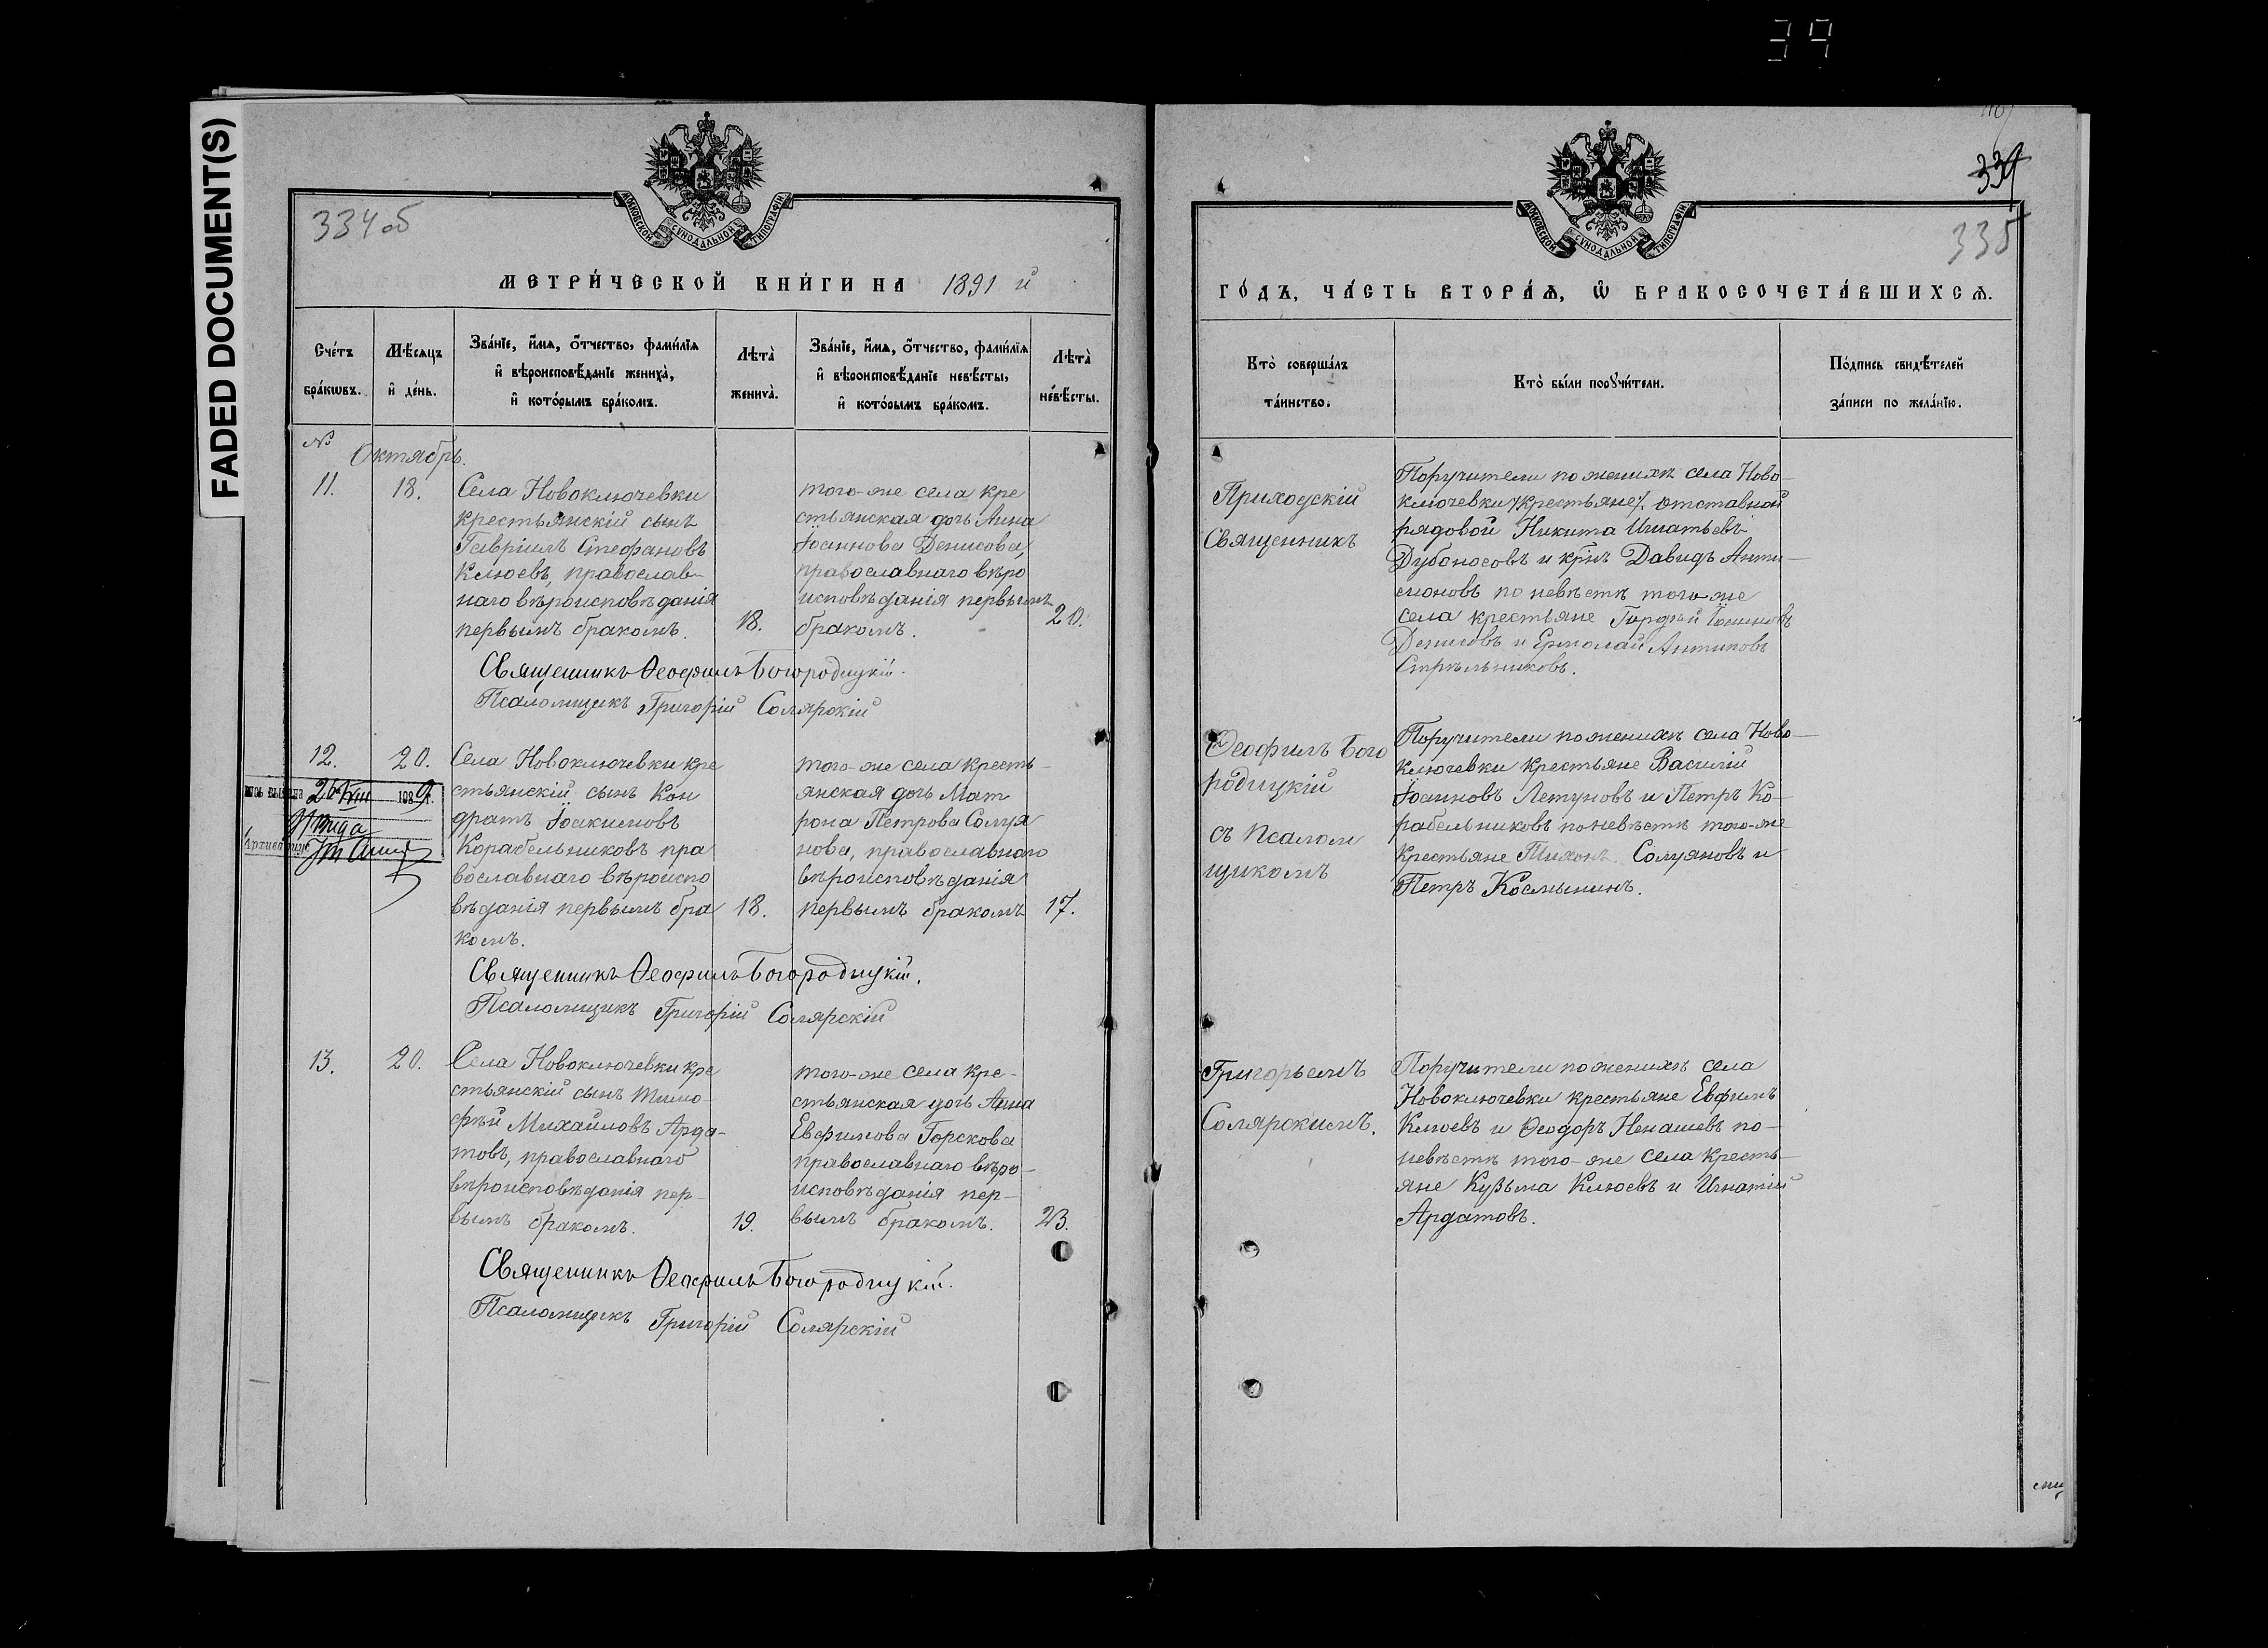 39
FADED DOCUMENT(S)
МОСКОВСКОЙ СѴНОДАЛЬНОЙ ТИПОГРАФІИ
334 об
МЕТРИ́ЧЕСКОЙ КНИ́ГИ НА 1891 й
Сче́тъ бра́кѡвъ.
Мѣ́сяцъ и҆ де́нь.
Зва́нїе, и҆́мѧ, ѻ҆́тчество, фами́лїѧ
и҆ вѣроисповѣ́данїе жениха̀,
и҆ кото́рымъ бра́комъ.
Лѣта̀ жениха̀.
Зва́нїе, и҆́мѧ, ѻ҆́тчество, фами́лїѧ
и҆ вѣроисповѣ́данїе невѣ́сты,
и҆ кото́рымъ бра́комъ.
Лѣта̀ невѣ́сты.
№
Октябрь.
11.
18.
Села Новоключевки
крестьянскій сынъ
Гавріилъ Стефановъ
Клюевъ, православ-
наго вѣроисповѣданія
первымъ бракомъ.
18.
того-же села кре
стьянская дочь Анна
Іоаннова Денисова,
православнаго вѣро
исповѣданія первымъ
бракомъ.
20.
Священникъ Ѳеофилъ Богородицкій.
Псаломщикъ Григорій Солярскій
12.
20.
Села Новоключевки кре
стьянскій сынъ Кон
дратъ Іоакимовъ
Корабельниковъ пра
вославнаго вѣроиспо
вѣданія первымъ бра
комъ.
18.
того-же села кресть-
янская дочь Мат
рона Петрова Солуя
нова, православнаго
вѣроисповѣданія
первымъ бракомъ
17.
Священникъ Ѳеофилъ Богородицкій.
Псаломщикъ Григорій Солярскій
13.
20.
Села Новоключевки кре
стьянскій сынъ Тимо-
фѣй Михайловъ Арда-
товъ, православнаго
вѣроисповѣданія пер-
вымъ бракомъ.
19.
того-же села кре-
стьянская дочь Анна
Евфимова Горскова
православнаго вѣро-
исповѣданія пер-
вымъ бракомъ.
23.
Священникъ Ѳеофилъ Богородицкій.
Псаломщикъ Григорій Солярскій
МОСКОВСКОЙ СѴНОДАЛЬНОЙ ТИПОГРАФІИ
339
335
ГО́ДЪ, ЧА́СТЬ ВТОРА́Ѧ, Ѡ҆ БРАКОСОЧЕТА́ВШИХСѦ.
Кто̀ соверша́лъ
та́инство.
Кто̀ бы́ли порꙋчи́тели.
По́дпись свидѣ́телей
за́писи по жела́нїю.
Приходскій
Священникъ
Поручители по женихѣ села Ново-
ключевки /крестьяне/. отставной
рядовой Никита Игнатьевъ
Дубоносовъ и крнъ Давидъ Анти-
моновъ по невѣстѣ того-же
села крестьяне Гордѣй Іоанновъ
Денисовъ и Ермолай Антиповъ
Стрѣльниковъ.
Ѳеофилъ Бого
родицкій
съ псалом
щикомъ
Поручители по женихѣ села Ново-
ключевки крестьяне Василій
Іоанновъ Летуновъ и Петръ Ко-
рабельниковъ по невѣстѣ того-же
крестьяне Тихонъ Солуяновъ и
Петръ Космынинъ.
Григорьемъ
Солярскимъ.
Поручители по женихѣ села
Новоключевки крестьяне Евфимъ
Клюевъ и Ѳеодоръ Ненашевъ по-
невѣстѣ того-же села кресть-
яне Кузьма Клюевъ и Игнатій
Ардатовъ.